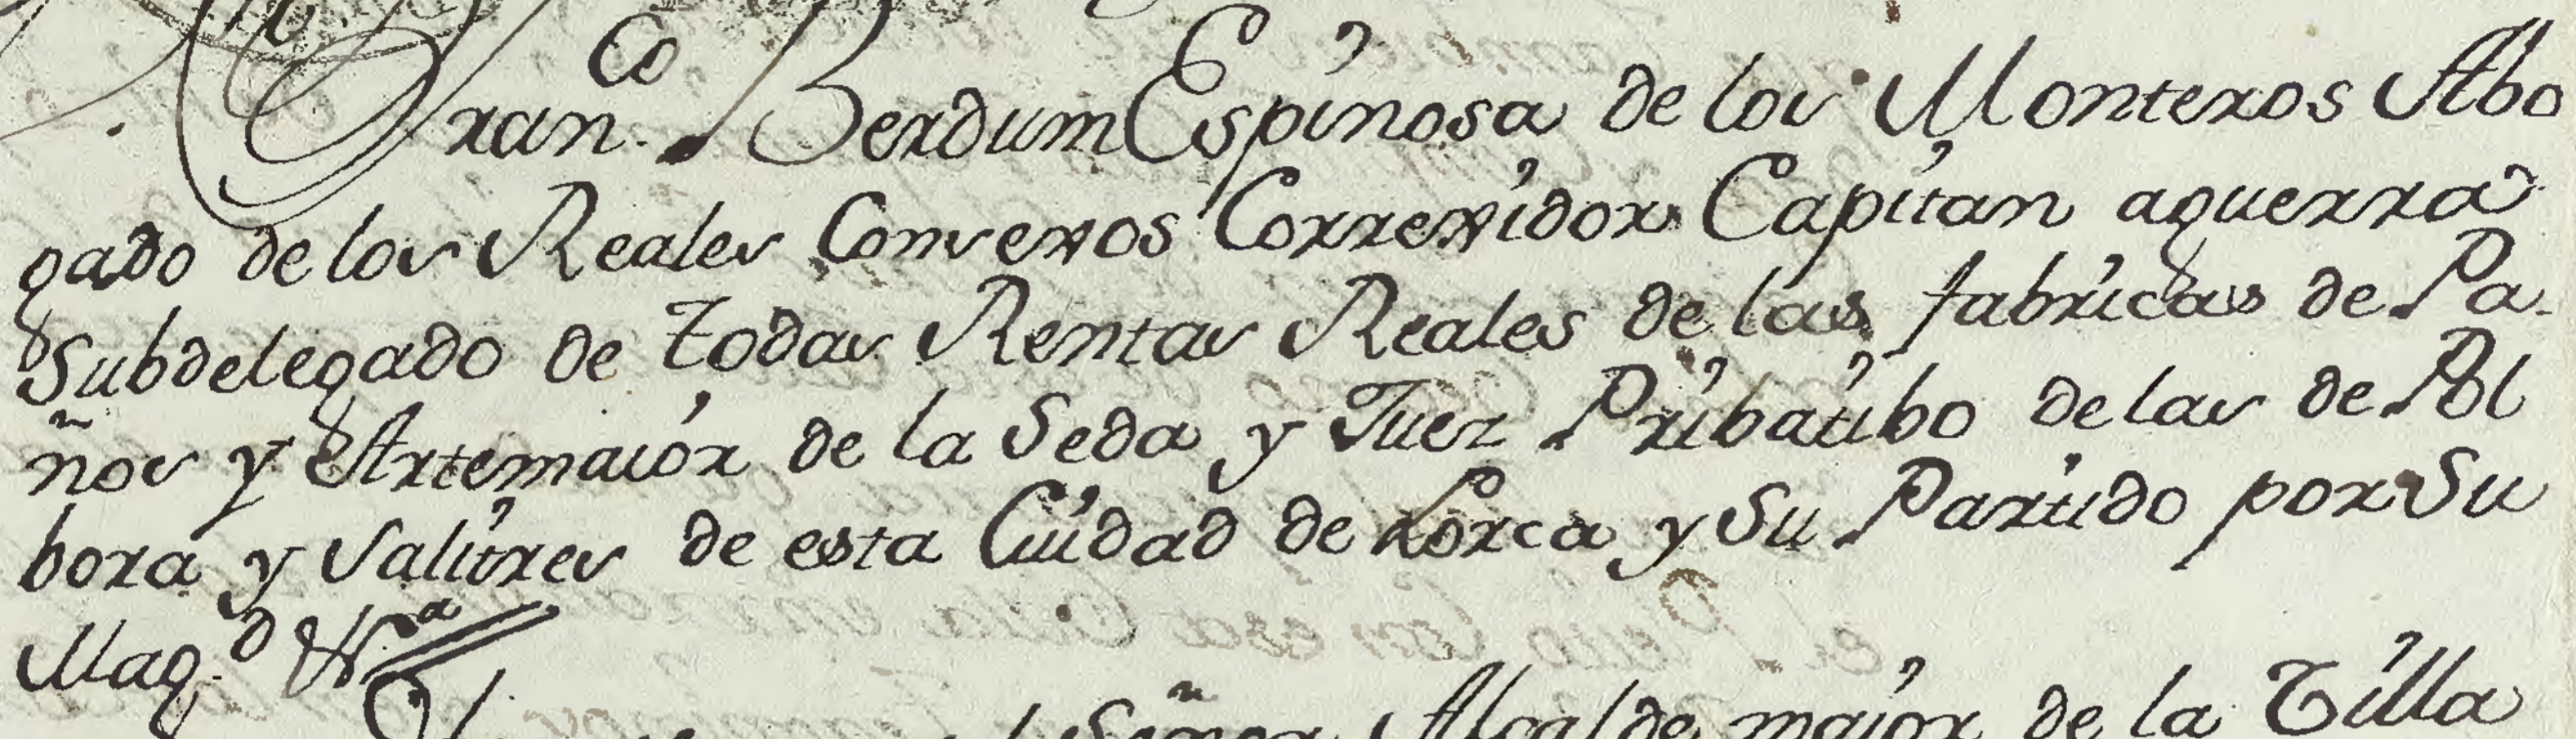 Fran.co Berdum Espinosa de los Monteros Abo
gado de los Reales Consexos Correxidor Capitan aguerra
Subdelegado de todas Rentas Reales de las fabricas de Pa
ños y Artemaior de la Seda y Juez Pribatibo de las de Pol
bora y Salitres de esta Ciudad de Lorca y Su Partido por Su
Mag.d &.a
Señor Alcalde maior de la Villa